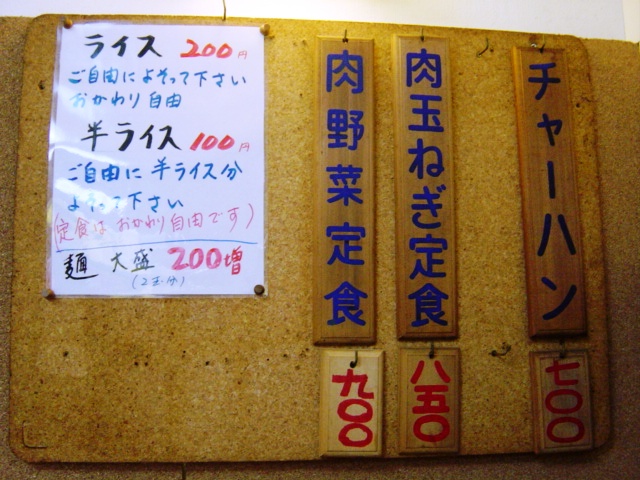 ライス 200円
ご自由によそって下さい
おかわり自由
半ライス 100円
ご自由に半ライス分
よそって下さい
(定食はおかわり自由です)
麺 大盛 200増
(2玉分)
肉野菜定食
九〇〇
肉玉ねぎ定食
八五〇
チャーハン
七〇〇